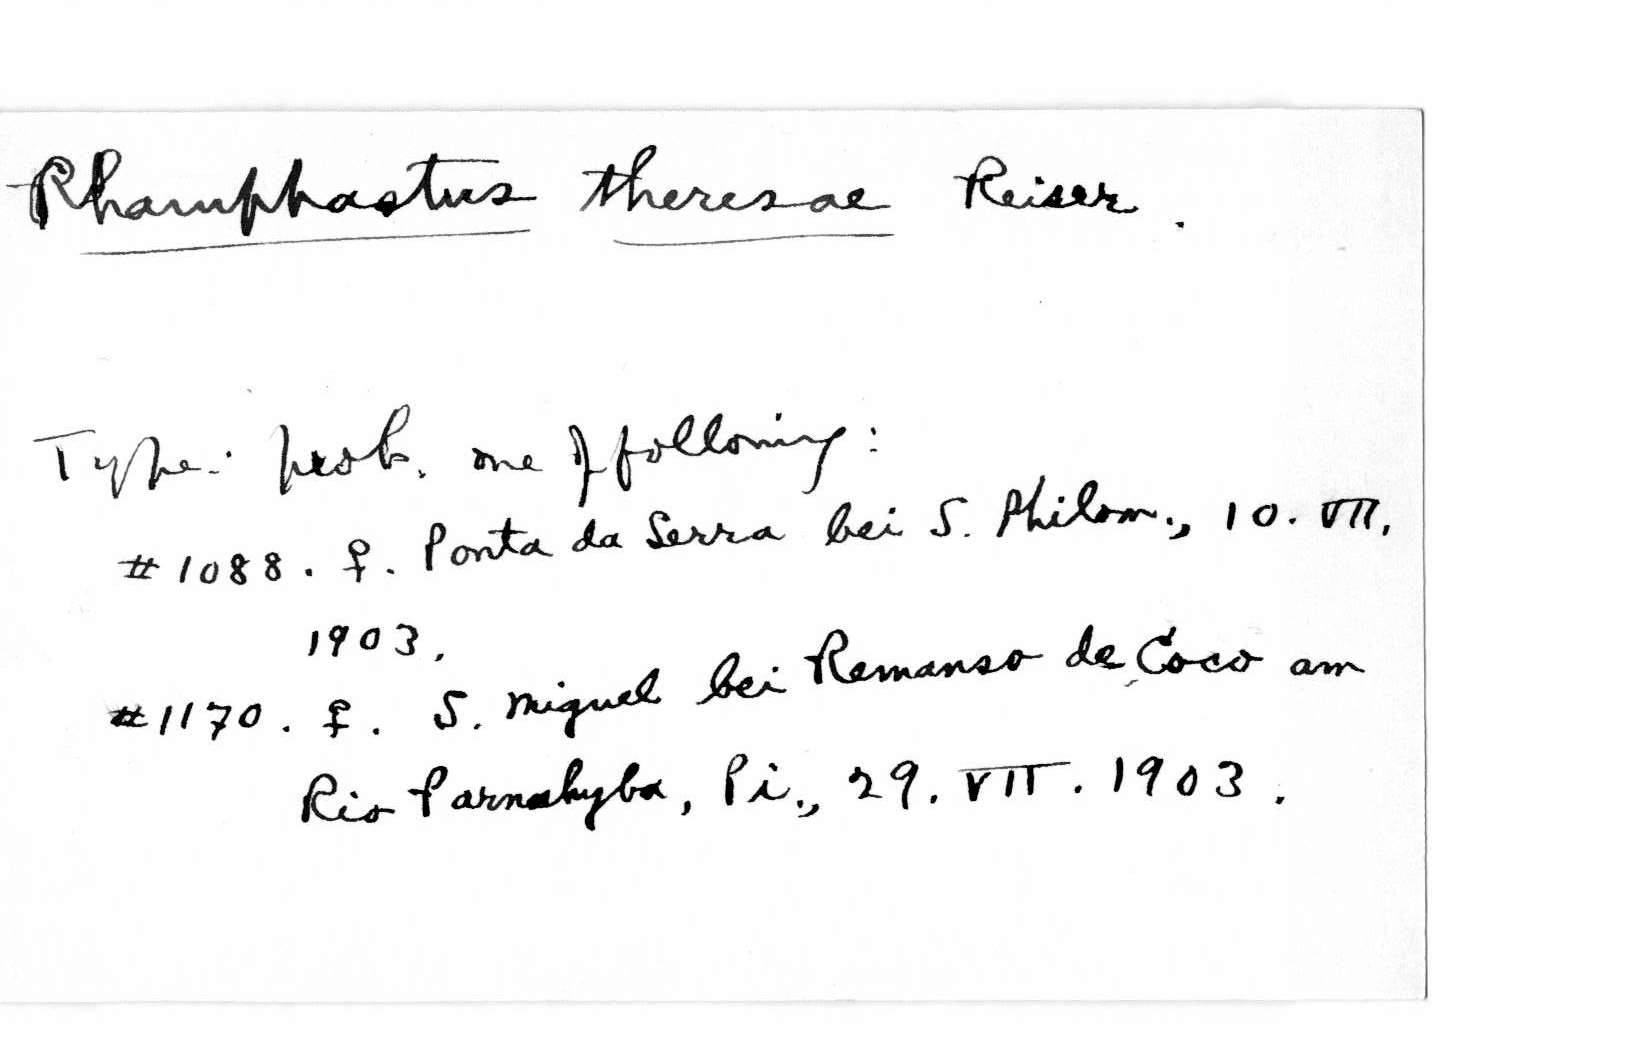 Rhamphastus theresae Reiser.
Type: prob. one of following:
#1088. ♀. Ponta da Serra bei S. Philom., 10. VII.
1903.
#1170. ♀. S. Miguel bei Remanso de Coco am
Rio Parnahyba, Pi., 29. VII. 1903.